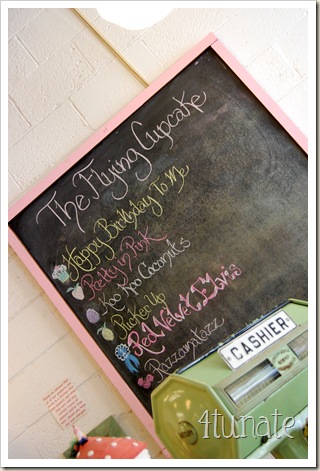 The Flying Cupcake
Happy Birthday To Me
Pretty in Pink
Koo Koo Coconuts
Pucker Up
Red Velvet Elvis
Razzamatazz
CASHIER
4tunate